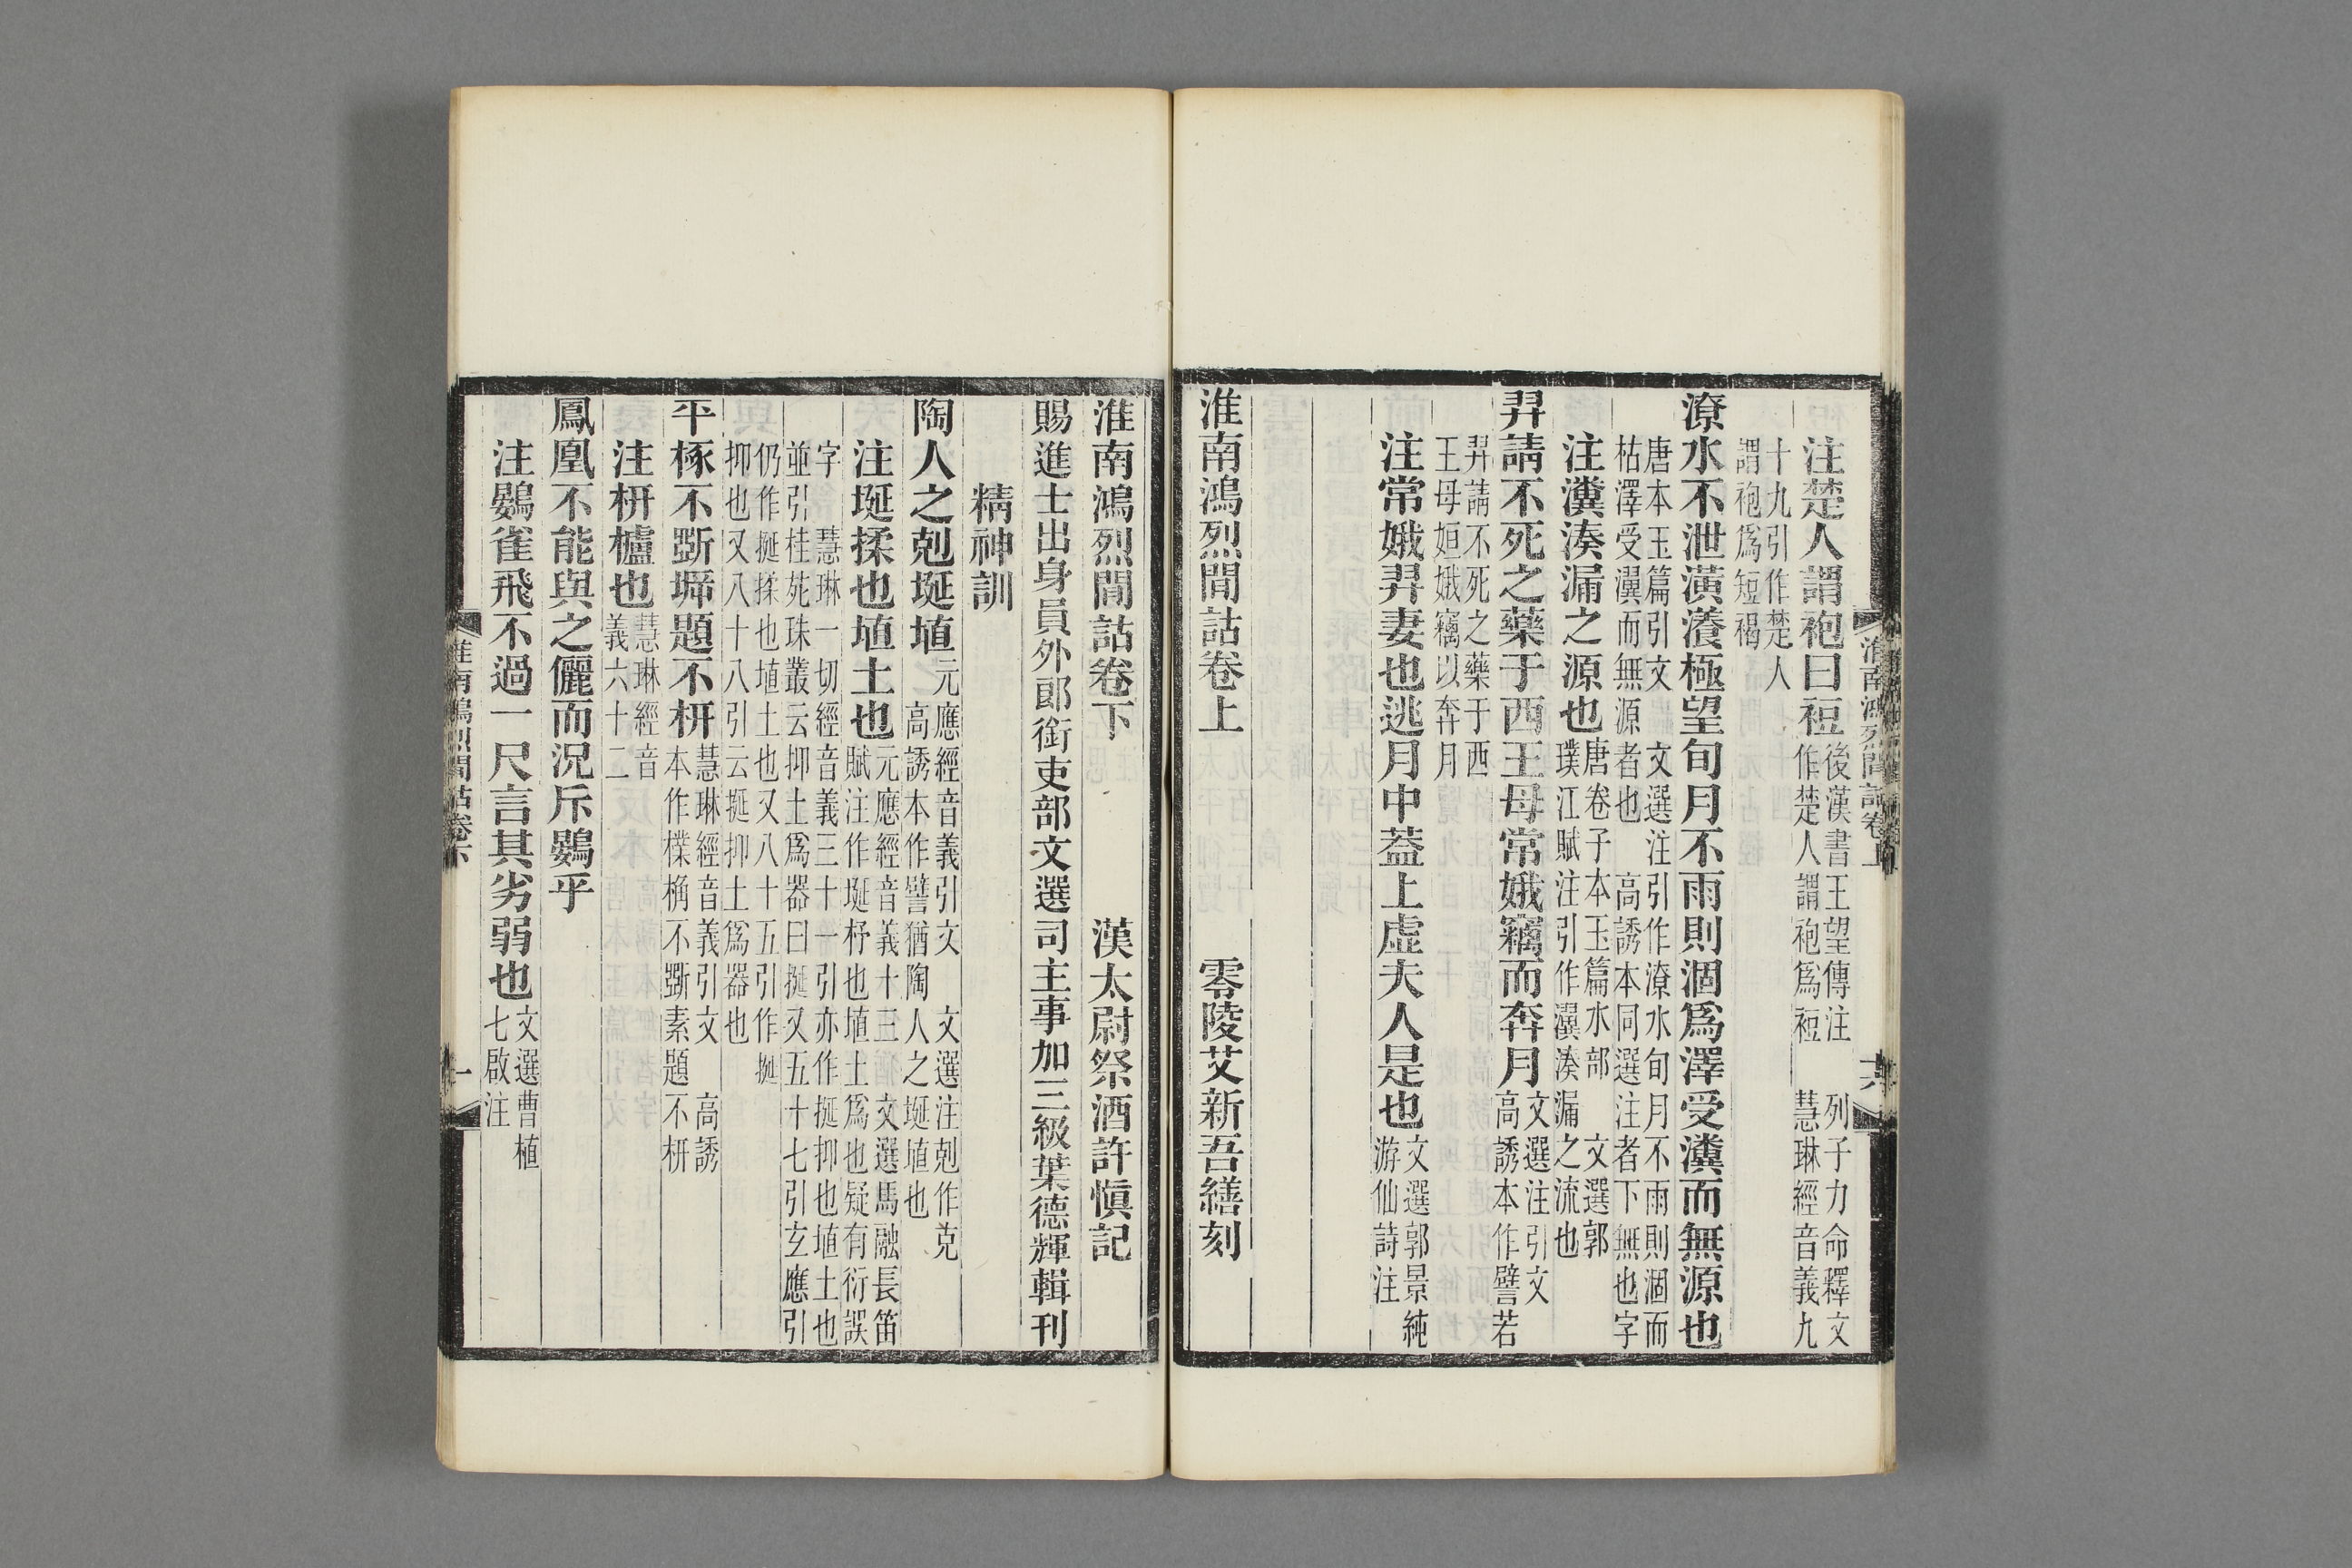 注楚人謂袍曰裋後漢書王望傳注
作楚人謂袍爲裋 列子力命釋文
慧琳經音義九
十九引作楚人
謂袍爲短褐
潦水不泄瀇瀁極望旬月不雨則涸爲澤受瀵而無源也
唐本玉篇引文 文選注引作潦水旬月不雨則涸而
枯澤受瀷而無源者也 高誘本同選注者下無也字
注瀵湊漏之源也唐卷子本玉篇水部 文選郭
璞江賦注引作瀷湊漏之流也
羿請不死之藥于西王母常娥竊而奔月文選注引文
高誘本作譬若
羿請不死之藥于西
王母姮娥竊以奔月
注常娥羿妻也逃月中葢上虛夫人是也文選郭景純
游仙詩注
淮南鴻烈閒詁卷上 零陵艾新吾繕刻
淮南鴻烈閒詁卷上
六
淮南鴻烈閒詁卷下 漢太尉祭酒許愼記
賜進士出身員外郎銜吏部文選司主事加三級葉德輝輯刊
精神訓
陶人之剋埏埴元應經音義引文 文選注剋作克
高誘本作譬猶陶人之埏埴也
注埏揉也埴土也元應經音義十三 文選馬融長笛
賦注作埏杼也埴土爲也疑有衍誤
字 慧琳一切經音義三十一引亦作挻抑也埴土也
並引桂苑珠叢云抑土爲器曰挻又五十七引玄應引
仍作挻揉也埴土也又八十五引作挻
抑也又八十八引云挻抑土爲器也
平椓不斲墆題不枅慧琳經音義引文 高誘
本作樸桷不斲素題不枅
注枅櫨也慧琳經音
義六十二
鳳凰不能與之儷而況斥鷃乎
注鷃雀飛不過一尺言其劣弱也文選曹植
七啟注
淮南鴻烈閒詁卷下
一